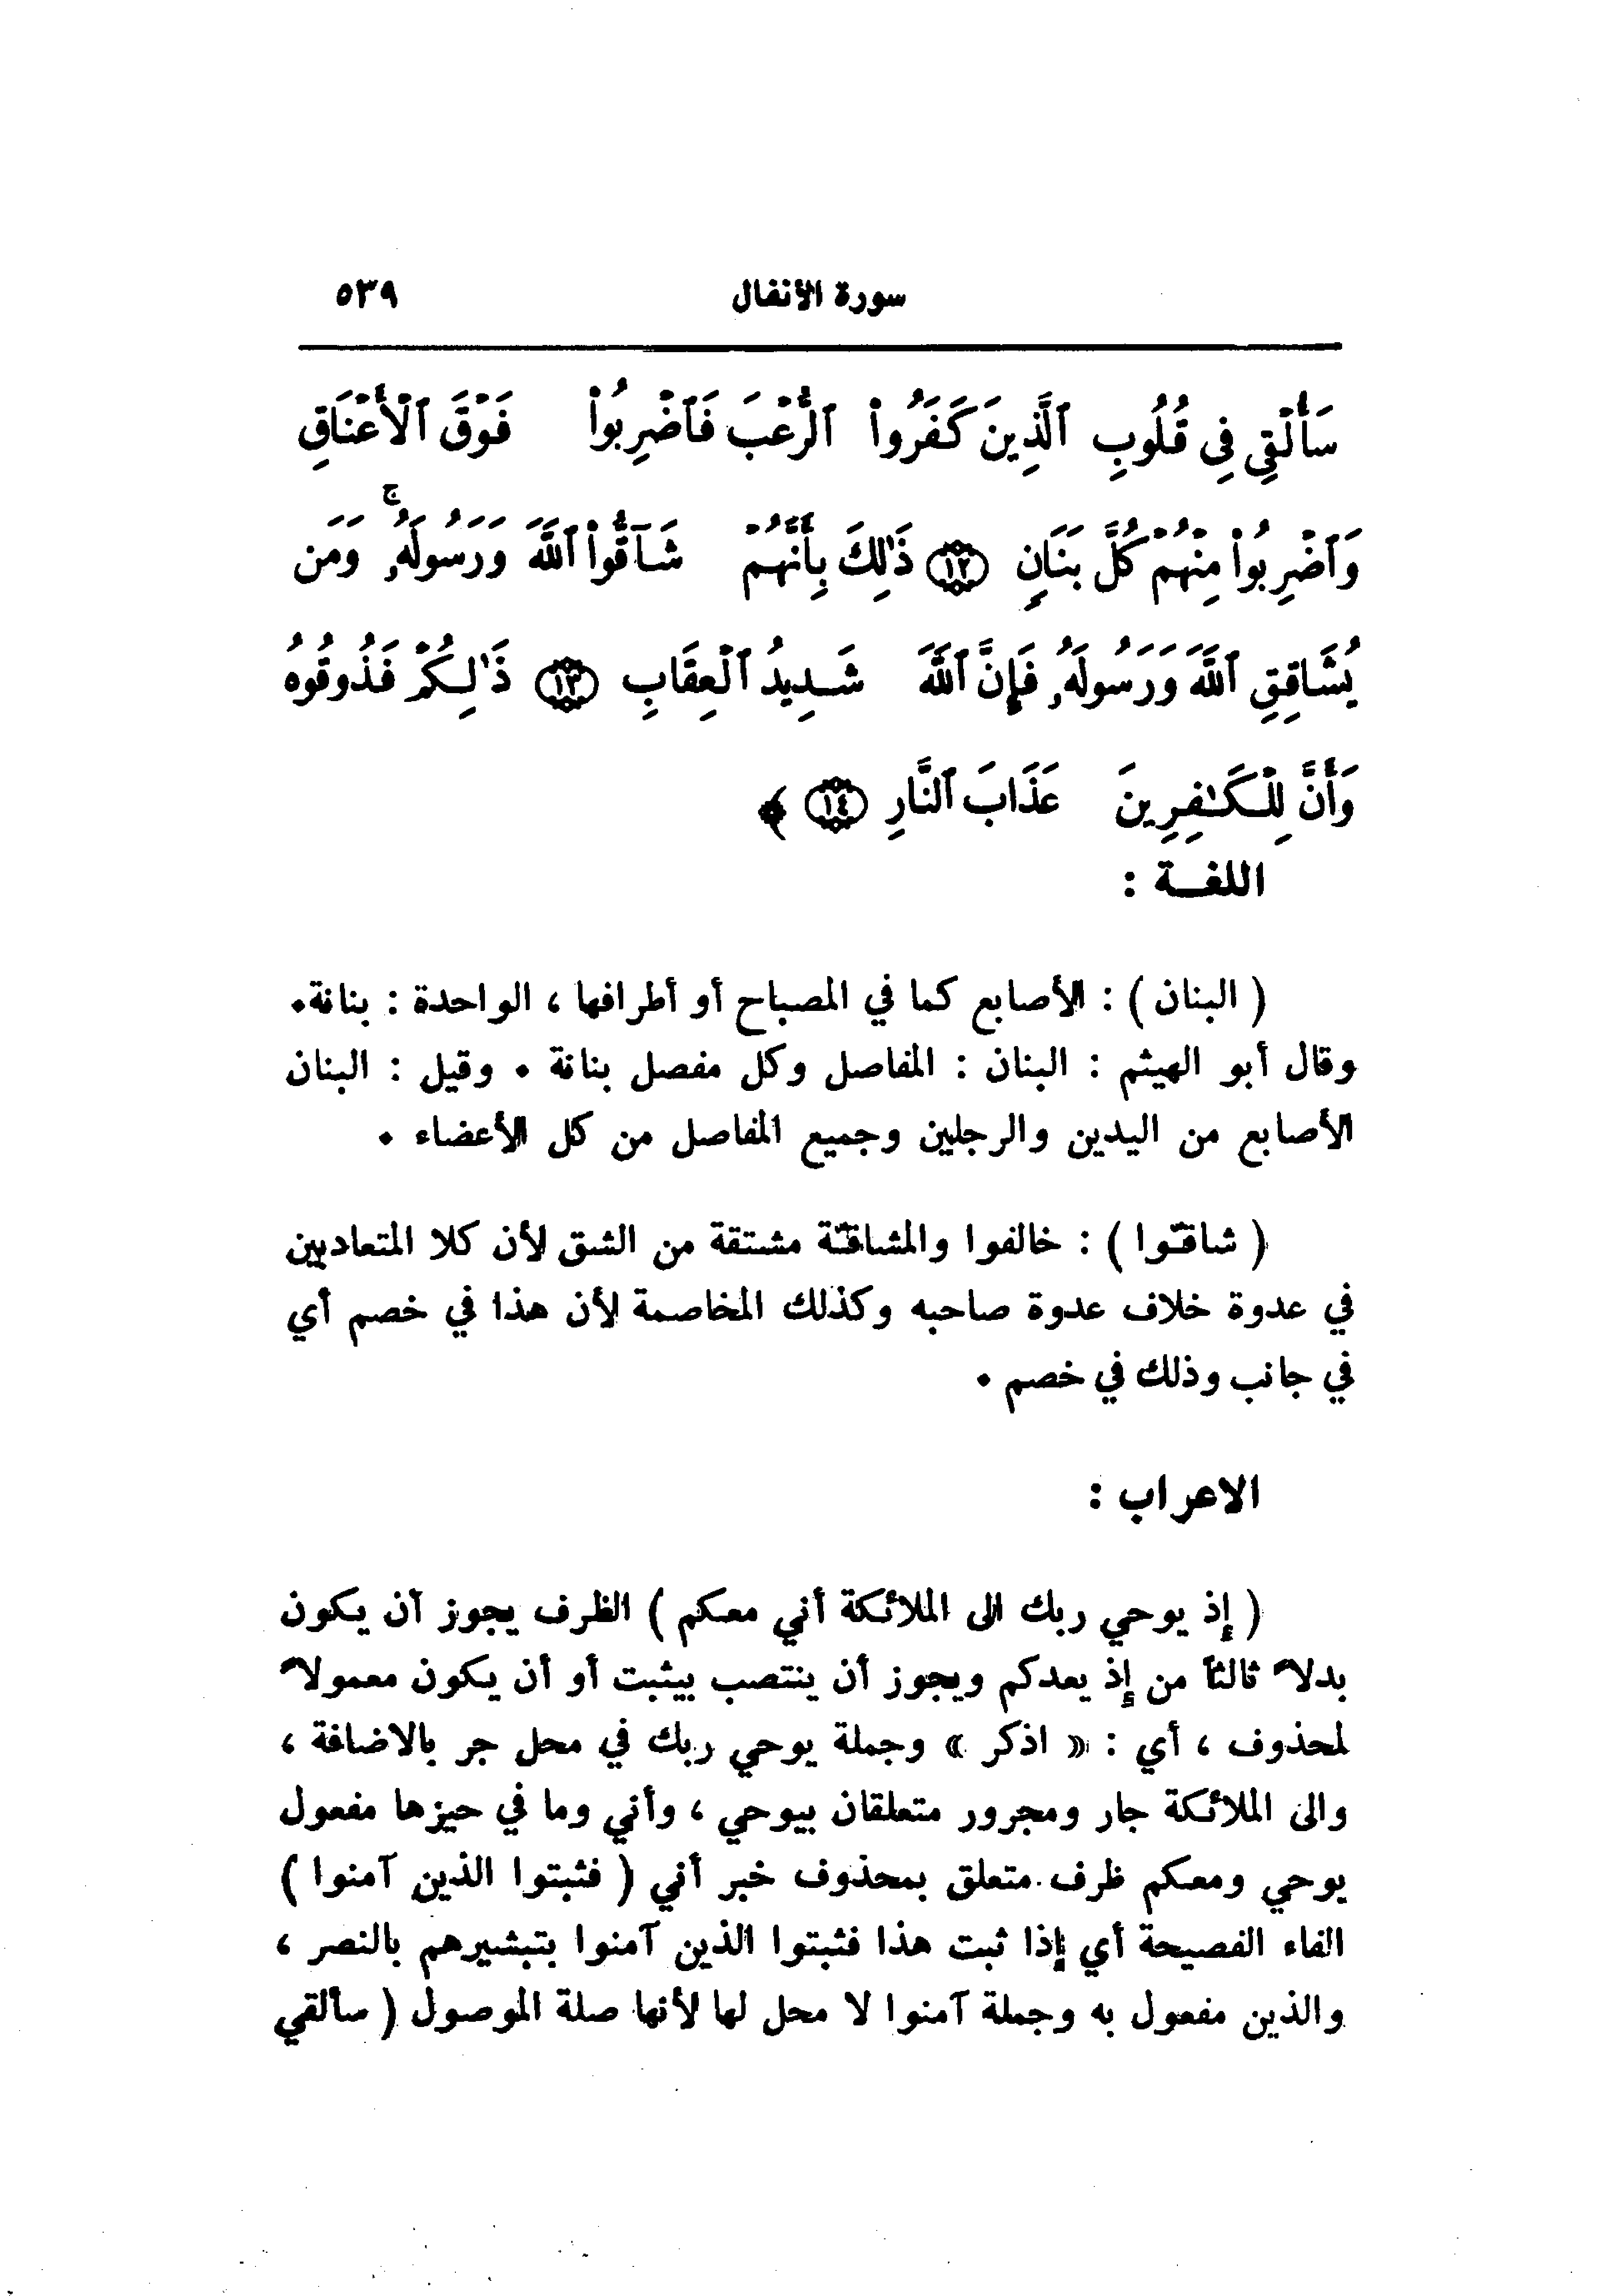 سورة الأنفال ٥٣٩
سَأُلْقِى فِى قُلُوبِ ٱلَّذِينَ كَفَرُوا۟ ٱلرُّعْبَ فَٱضْرِبُوا۟ فَوْقَ ٱلْأَعْنَاقِ
وَٱضْرِبُوا۟ مِنْهُمْ كُلَّ بَنَانٍ ١٢ ذَٰلِكَ بِأَنَّهُمْ شَآقُّوا۟ ٱللَّهَ وَرَسُولَهُۥ ۚ وَمَن
يُشَاقِقِ ٱللَّهَ وَرَسُولَهُۥ فَإِنَّ ٱللَّهَ شَدِيدُ ٱلْعِقَابِ ١٣ ذَٰلِكُمْ فَذُوقُوهُ
وَأَنَّ لِلْكَـٰفِرِينَ عَذَابَ ٱلنَّارِ ١٤ ﴾
اللغـة :
( البنان ) : الأصابع كما في المصباح أو أطرافها ، الواحدة : بنانة.
وقال أبو الهيثم : البنان : المفاصل وكل مفصل بنانة . وقيل : البنان
الأصابع من اليدين والرجلين وجميع المفاصل من كل الأعضاء .
( شاقّوا ) : خالفوا والمشاقّة مشتقة من الشق لأن كلا المتعاديين
في عدوة خلاف عدوة صاحبه وكذلك المخاصمة لأن هذا في خصم أي
في جانب وذلك في خصم .
الاعراب :
( إذ يوحي ربك الى الملائكة أني معكم ) الظرف يجوز أن يكون
بدلاً ثالثاً من إذ يعدكم ويجوز أن ينتصب بيثبت أو أن يكون معمولاً
لمحذوف ، أي : « اذكر » وجملة يوحي ربك في محل جر بالاضافة ،
والى الملائكة جار ومجرور متعلقان بيوحي ، وأني وما في حيزها مفعول
يوحي ومعكم ظرف متعلق بمحذوف خبر أني ( فثبتوا الذين آمنوا )
الفاء الفصيحة أي إذا ثبت هذا فثبتوا الذين آمنوا بتبشيرهم بالنصر ،
والذين مفعول به وجملة آمنوا لا محل لها لأنها صلة الموصول ( سألقي